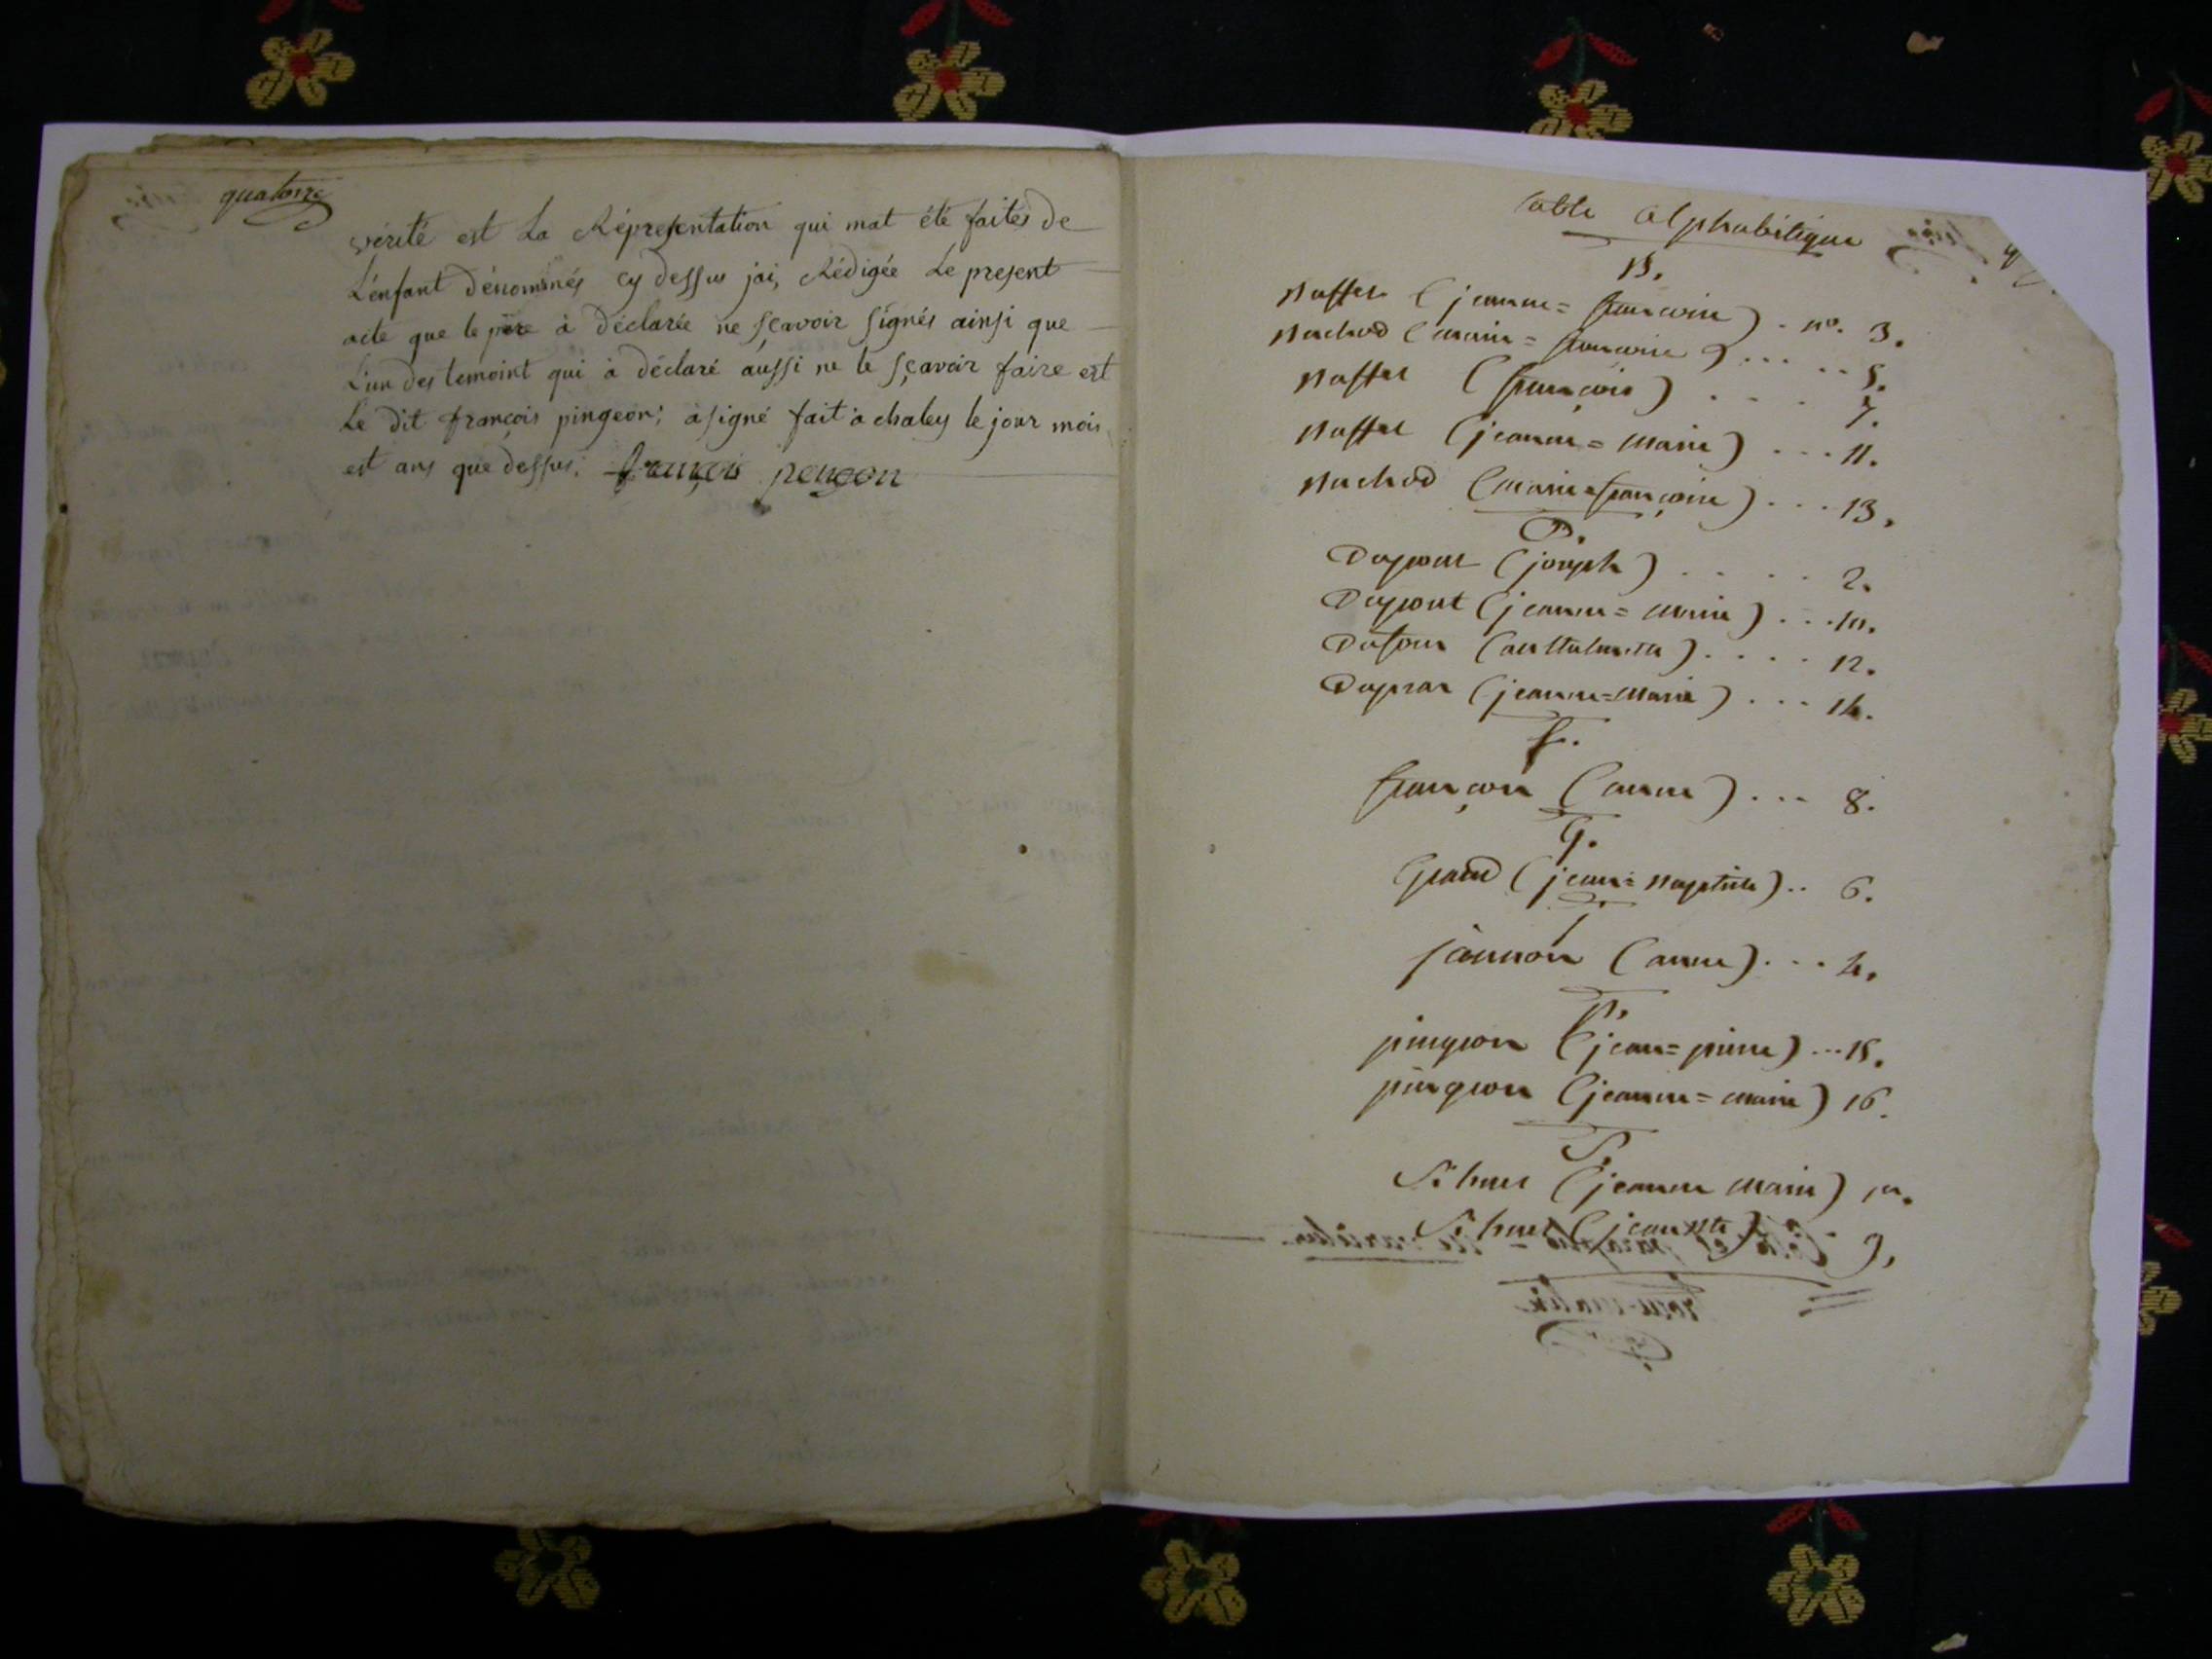 quatorze
vérité est La Répresentation qui mat été faites de
L'enfant dénommés cy dessus jai, Rédigée Le present
acte que le père à déclarée ne sçavoir signés ainsi que
L'un des temoint qui à déclaré aussi ne le sçavoir faire est
Le dit françois pingeon; à signé fait à chaley le jour mois
est ans que dessus. françois pengeon
table alphabétique
B.
Buffet (jeanne = françoise) . no. 3.
Bachod (marie = françoise) . . . . . 5.
Buffet (françois) . . . 7.
Buffet (jeanne = marie) . . . 11.
Bachod (marie = françoise) . . . 13.
D.
Dupont (joseph) . . . . . 2.
Dupont (jeanne = marie) . . . 10.
Dufour . . . . 12.
Dupras (jeanne = marie) . . . 14.
f.
françon (anne) . . . 8.
G.
Grand (jean = Baptiste) . . 6.
j
jannon (anne) . . . 4.
p.
pingeon (jean = pierre) . . . 15.
pingeon (jeanne = marie) 16.
S.
(jeanne marie) 1er.
9.